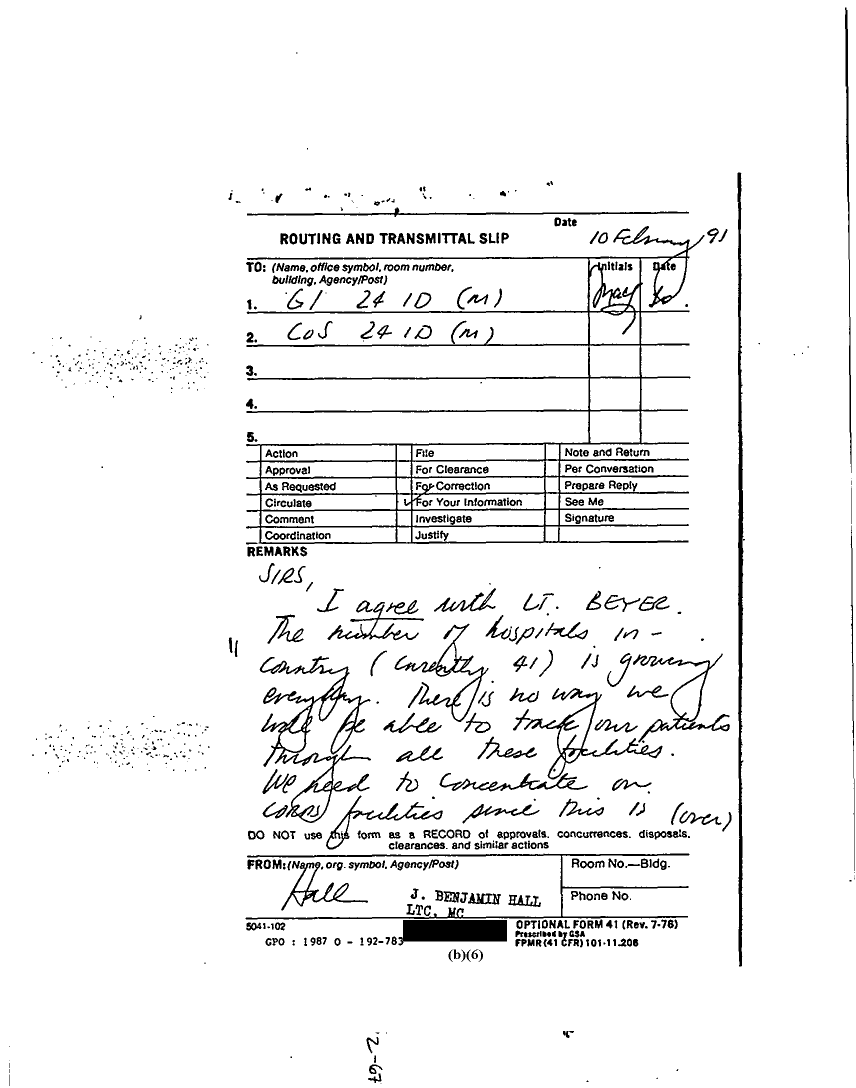 Date
ROUTING AND TRANSMITTAL SLIP
10 February 91
TO: (Name, office symbol, room number,
building, Agency/Post)
Initials
Date
1. G1 24 ID (M)
2. CoS 24 ID (M)
3.
4.
5.
Action File Note and Return
Approval For Clearance Per Conversation
As Requested For Correction Prepare Reply
Circulate ✓ For Your Information See Me
Comment Investigate Signature
Coordination Justify
REMARKS
SIRS,
I agree with LT. BEYER.
The number of hospitals in-
country (currently 41) is growing
everyday. There is no way we
will be able to track our patients
through all these facilities.
We need to concentrate on
CORPS facilities since this is (over)
DO NOT use this form as a RECORD of approvals, concurrences, disposals,
clearances, and similar actions
FROM: (Name, org. symbol, Agency/Post)
Room No.—Bldg.
Hall
J. BENJAMIN HALL
LTC, MC
Phone No.
5041-102
OPTIONAL FORM 41 (Rev. 7-76)
Prescribed by GSA
FPMR (41 CFR) 101-11.206
GPO : 1987 O - 192-783
(b)(6)
2-67